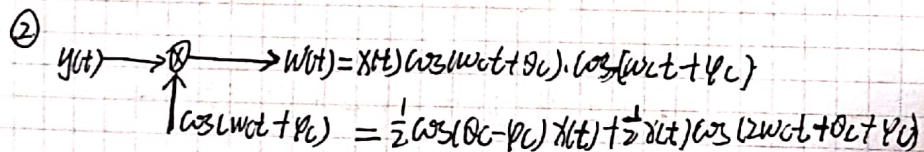 ②
y(t) → ⊗ → w(t)=x(t)cos(ωct+θc)·cos(ωct+φc)
cos(ωct+φc) = 1/2 cos(θc-φc)x(t)+1/2 x(t)cos(2ωct+θc+φc)